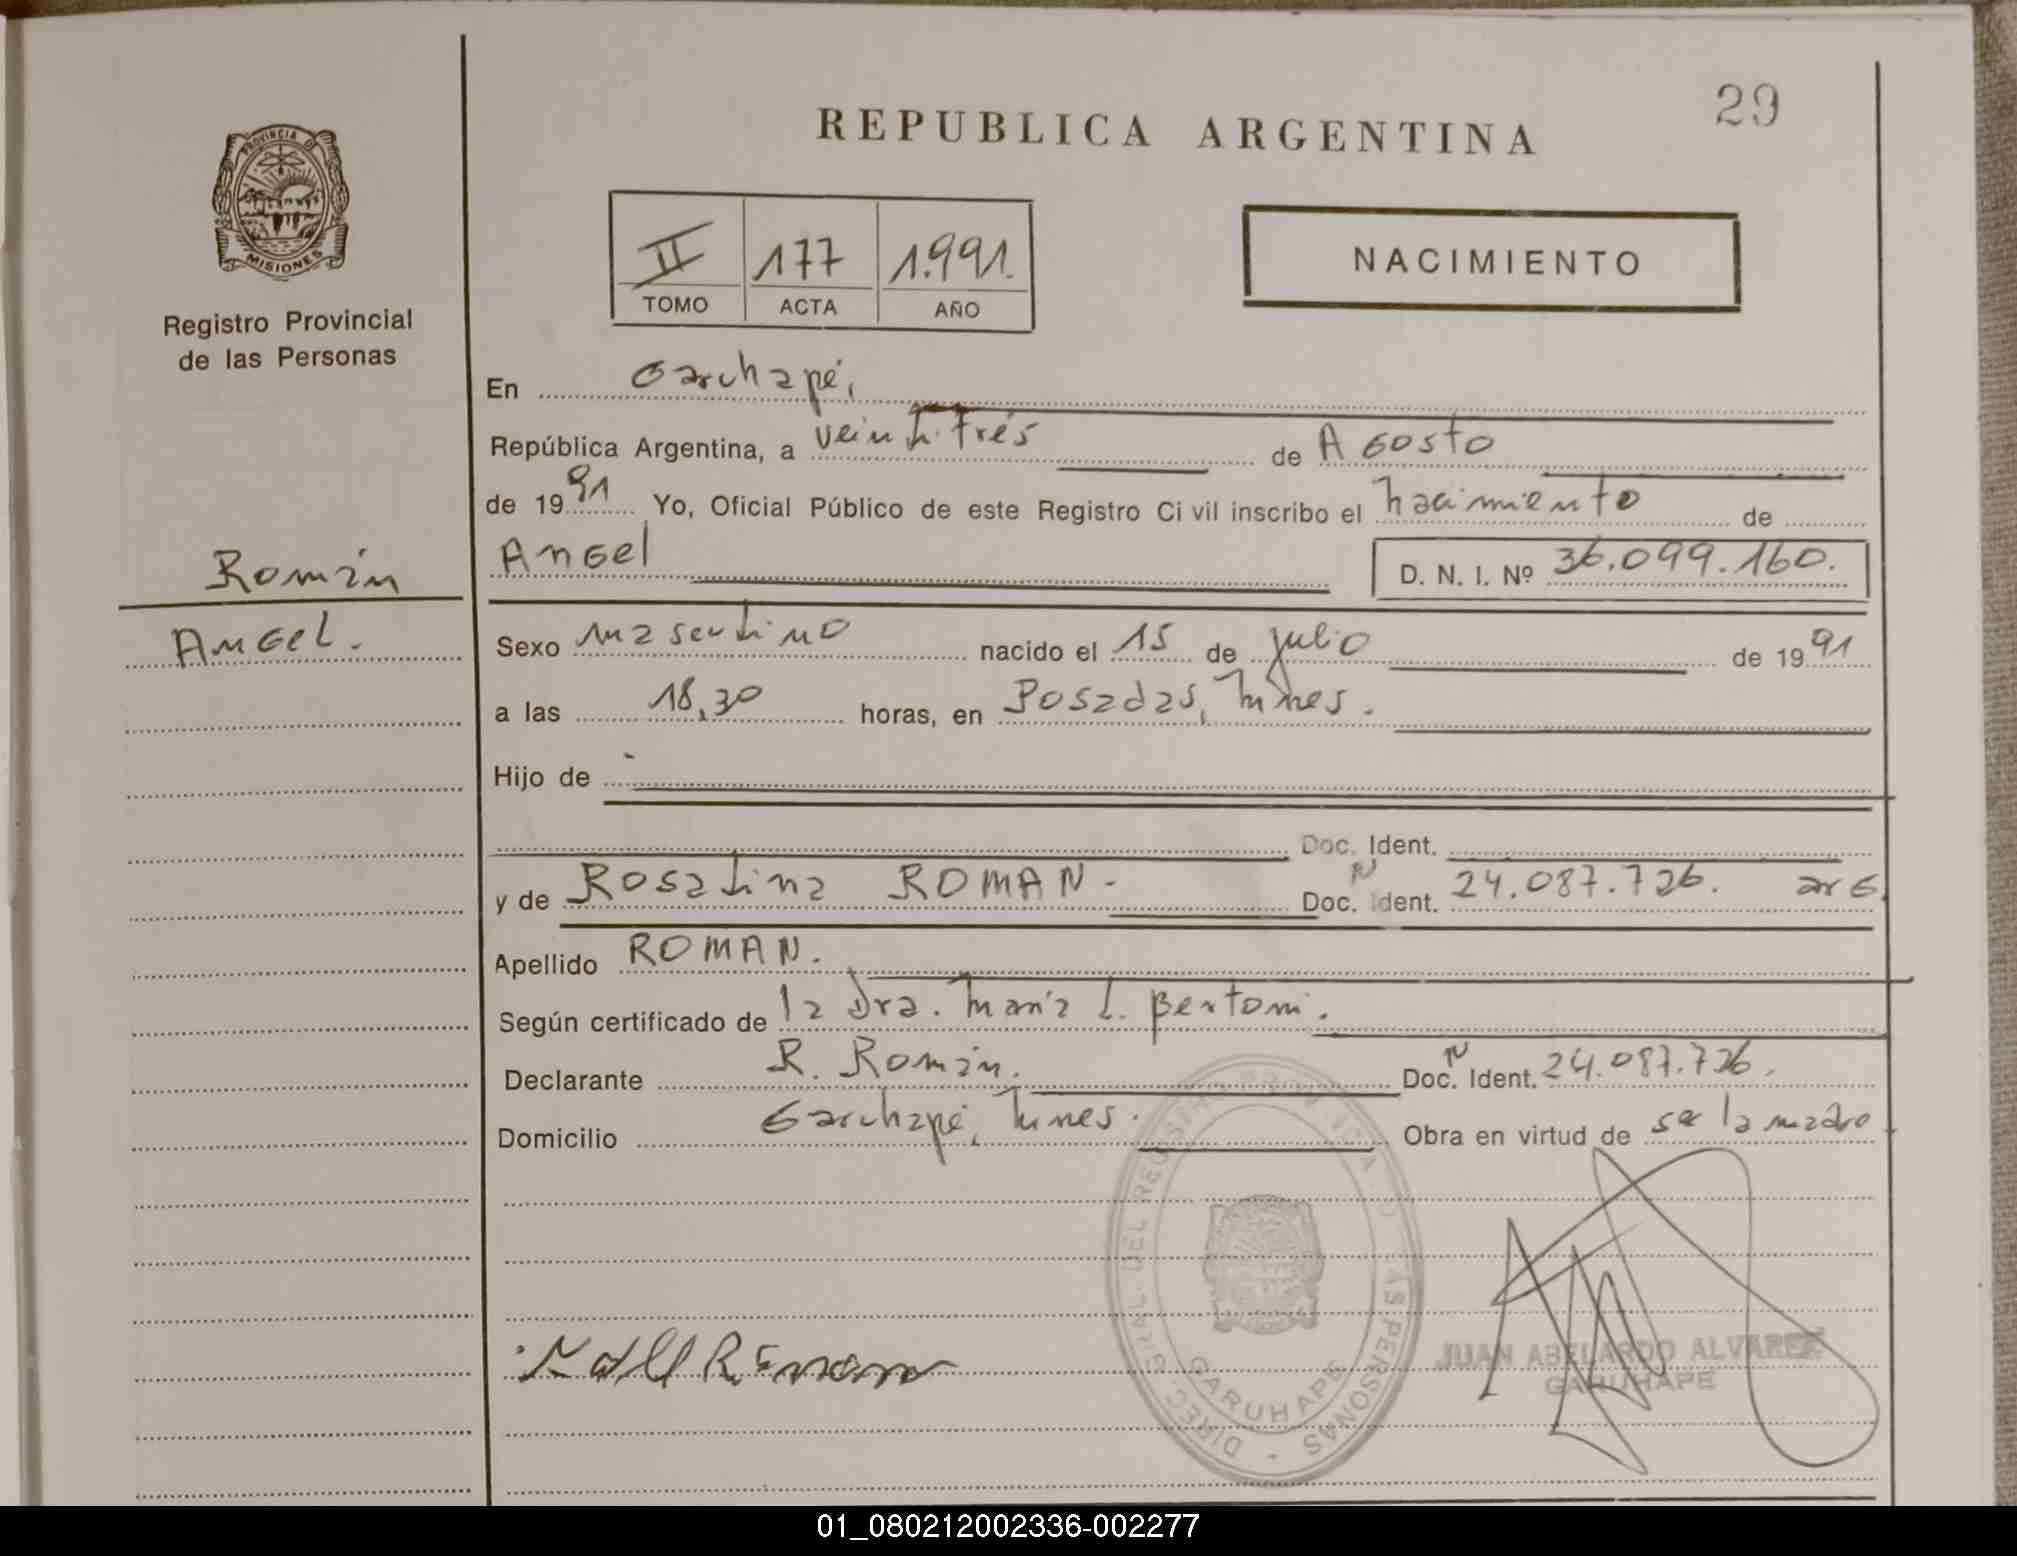 29
REPUBLICA ARGENTINA
PROVINCIA DE
MISIONES
Registro Provincial
de las Personas
II 177 1.991.
TOMO ACTA AÑO
NACIMIENTO
En Garuhapé,
República Argentina, a veintitrés de Agosto
de 1991 Yo, Oficial Público de este Registro Ci vil inscribo el nacimiento de
Angel D. N. I. Nº 36.099.160.
Román
Angel.
Sexo masculino nacido el 15 de julio de 1991
a las 18,30 horas, en Posadas, Mnes.
Hijo de
Doc. Ident.
y de Rosalina ROMAN. Doc. Ident. 24.087.726. arg
Apellido ROMAN.
Según certificado de la Dra. María L. Bertoni.
Declarante R. Román. Doc. Ident. 24.087.726.
Domicilio Garuhapé, Mnes. Obra en virtud de ser la madre
DIREC. GRAL. DEL REGISTRO PROVINCIAL DE LAS PERSONAS -
GARUHAPE
JUAN ABELARDO ALVAREZ
GARUHAPE
01_080212002336-002277